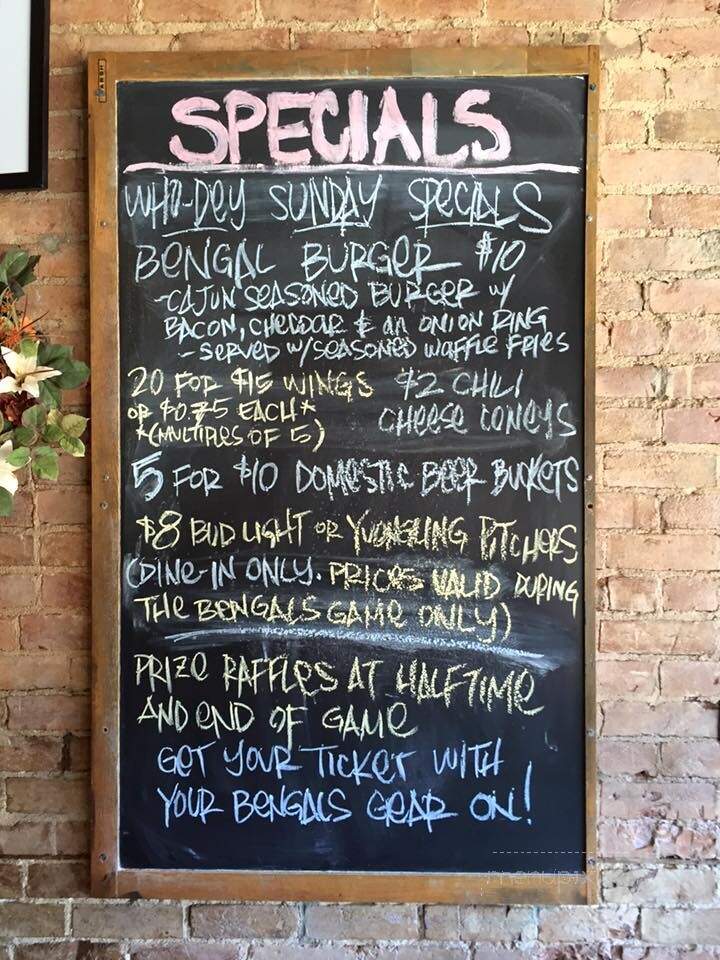 SPECIALS
WHO-DEY SUNDAY SPECIALS
BENGAL BURGER $10
-CAJUN SEASONED BURGER W/
BACON, CHEDDAR & an ONION RING
- SERVED W/SEASONED WAFFLE FRIES
20 FOR $15 WINGS
OR $0.75 EACH*
*(MULTIPLES OF 5)
$2 CHILI
CHEESE CONEYS
5 FOR $10 DOMESTIC BEER BUCKETS
$8 BUD LIGHT OR YUENGLING PITCHERS
(DINE-IN ONLY. PRICES VALID DURING
THE BENGALS GAME ONLY)
PRIZE RAFFLES AT HALFTIME
AND END OF GAME
GET YOUR TICKET WITH
YOUR BENGALS GEAR ON!